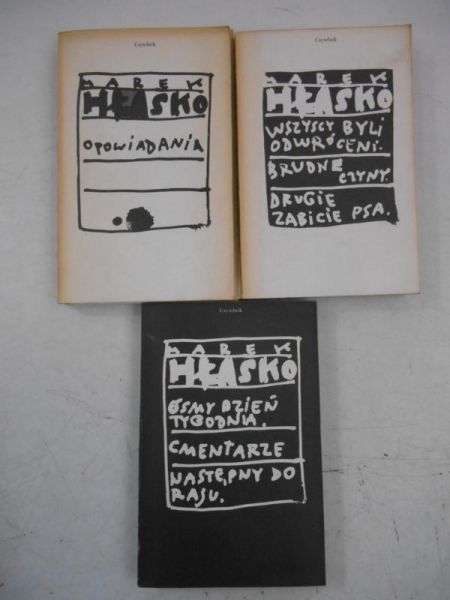 Czytelnik
MAREK
HŁASKO
OPOWIADANIA
Czytelnik
MAREK
HŁASKO
WSZYSCY BYLI
ODWRÓCENI.
BRUDNE
CZYNY.
DRUGIE
ZABICIE PSA.
Czytelnik
MAREK
HŁASKO
ÓSMY DZIEŃ
TYGODNIA.
CMENTARZE
NASTĘPNY DO
RAJU.